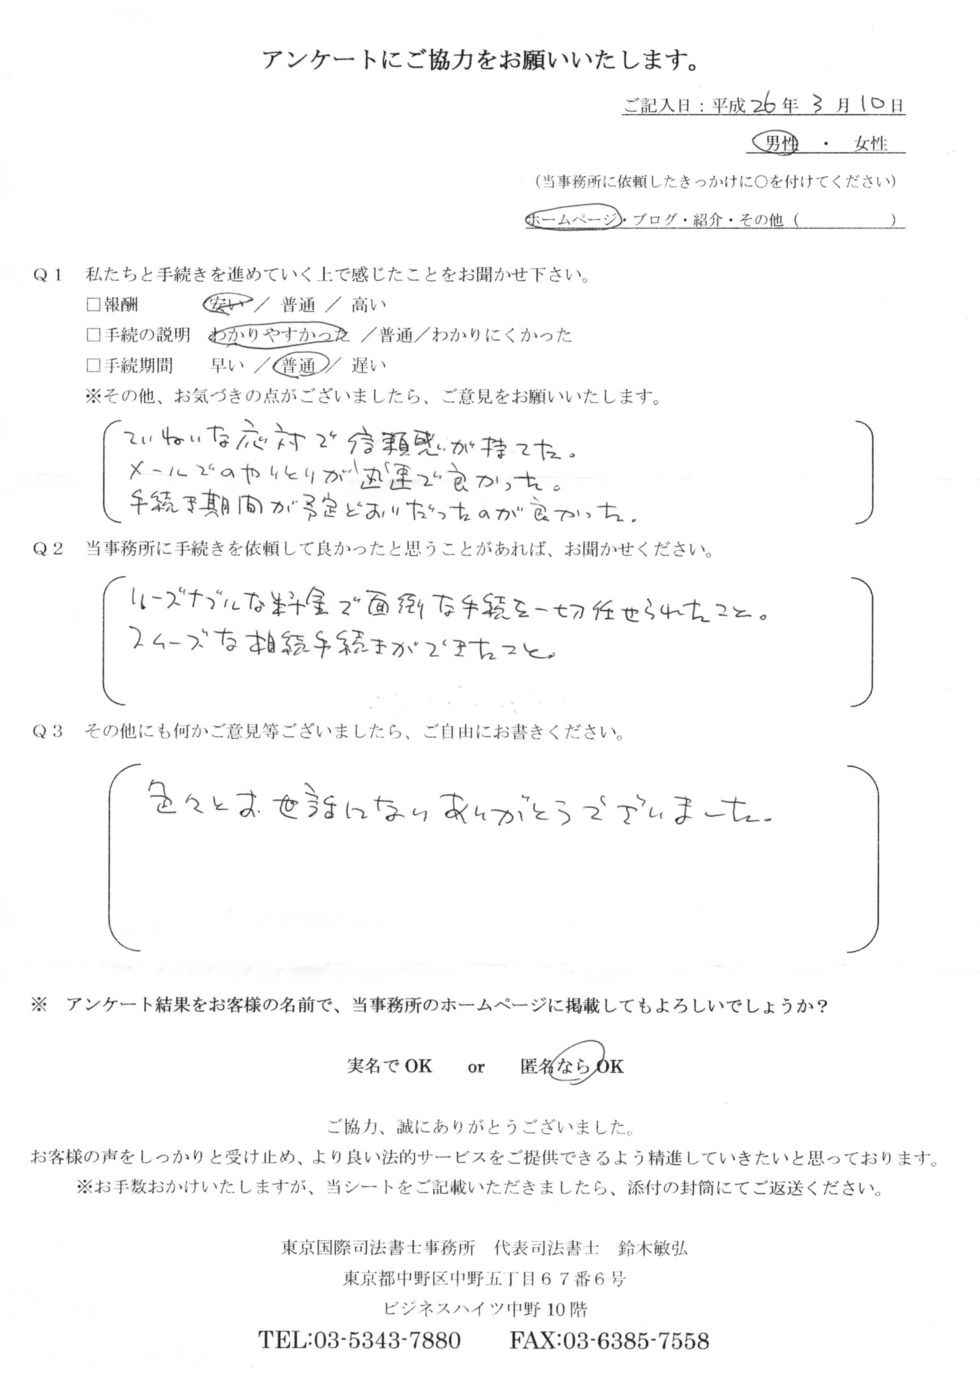 アンケートにご協力をお願いいたします。
ご記入日：平成26年3月10日
男性 ・ 女性
（当事務所に依頼したきっかけに○を付けてください）
ホームページ・ブログ・紹介・その他（ ）
Q1 私たちと手続きを進めていく上で感じたことをお聞かせ下さい。
□報酬 安い／ 普通 ／ 高い
□手続の説明 わかりやすかった ／普通／わかりにくかった
□手続期間 早い ／普通／ 遅い
※その他、お気づきの点がございましたら、ご意見をお願いいたします。
ていねいな応対で信頼感が持てた。
メールでのやりとりが迅速で良かった。
手続き期間が予定どおりだったのが良かった。
Q2 当事務所に手続きを依頼して良かったと思うことがあれば、お聞かせください。
リーズナブルな料金で面倒な手続を一切任せられたこと。
スムーズな相続手続きができたこと。
Q3 その他にも何かご意見等ございましたら、ご自由にお書きください。
色々とお世話になりありがとうございました。
※ アンケート結果をお客様の名前で、当事務所のホームページに掲載してもよろしいでしょうか？
実名でOK or 匿名ならOK
ご協力、誠にありがとうございました。
お客様の声をしっかりと受け止め、より良い法的サービスをご提供できるよう精進していきたいと思っております。
※お手数おかけいたしますが、当シートをご記載いただきましたら、添付の封筒にてご返送ください。
東京国際司法書士事務所 代表司法書士 鈴木敏弘
東京都中野区中野五丁目67番6号
ビジネスハイツ中野10階
TEL:03-5343-7880 FAX:03-6385-7558